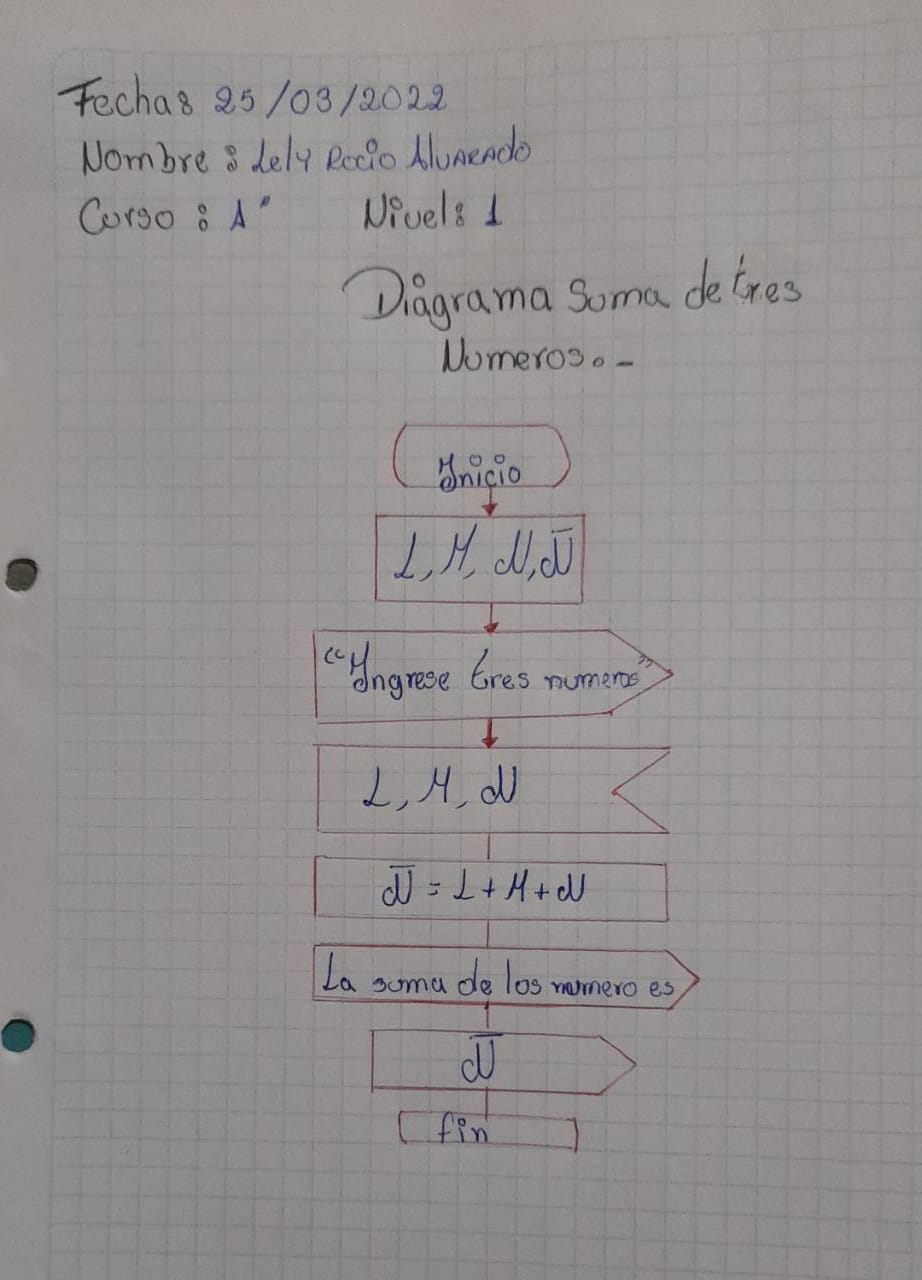 Fecha: 25/03/2022
Nombre: Lely Rocio Alvarado
Curso: A" Nivel: 1
Diagrama Suma de tres
Numeros.-
Inicio
L, M, N, N̄
"Ingrese tres numeros"
L, M, N
N̄ = L + M + N
La suma de los numero es
N̄
fin